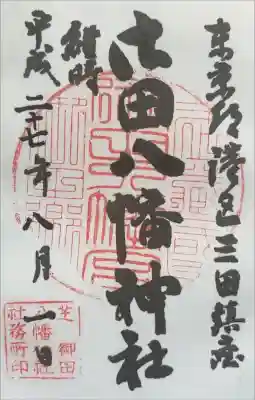 東京都港区三田鎮座
御田八幡神社
平成二十七年八月一日
芝御田
八幡神社
社務所印